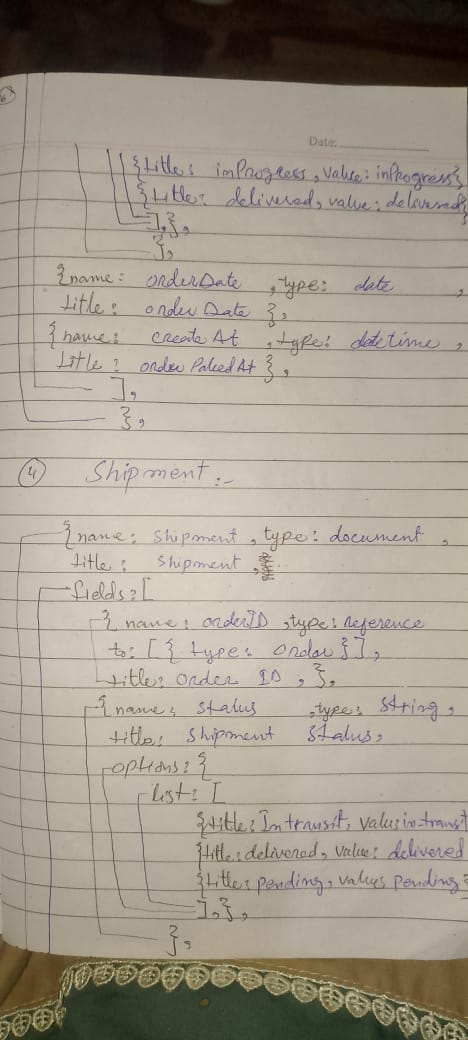 Date:
{title: inProgress, value: inProgress},
{title: delivered, value: delivered}
],},
},
{name: orderDate , type: date ,
title: order Date },
{name: create At , type: datetime ,
title: order Palced At },
],
},
4 Shipment :-
{name: Shipment , type: document ,
title: Shipment ,
fields: [
{ name: orderID , type: reference
to: [ { type: order } ] ,
title: Order ID , },
{name: status , type: string ,
title: Shipment Status,
options: {
list: [
{title: In transit, value: in-transit
{title: delivered, value: delivered
{title: pending, value: pending
],},
},